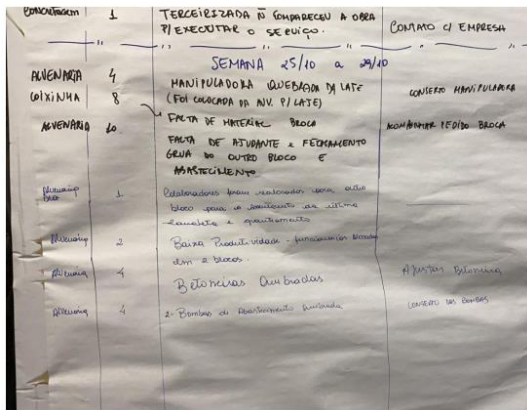 CONCRETAGEM 1 TERCEIRIZADA Ñ COMPARECEU A OBRA
P/ EXECUTAR O SERVIÇO. CONTATO C/ EMPRESA
SEMANA 25/10 a 29/10
ALVENARIA 4 MANIPULADORA QUEBRADA DA LATE CONSERTO MANIPULADORA
COIXINHA 8 (FOI COLOCADA DA INV. P/ LATE)
ALVENARIA 10 FALTA DE MATERIAL BROCA ACOMPANHAR PEDIDO BROCA
FALTA DE AJUDANTE e FECHAMENTO
GRUA DO OUTRO BLOCO E
ABASTECIMENTO
Alvenaria 1 Colaboradores foram realocados para outro
bloco para o da última
canaleta e
Alvenaria 2 Baixa Produtividade - funcionários
em 2 blocos.
Alvenaria 4 Betoneiras Quebradas Ajustar Betoneira
Alvenaria 4 2 - Bombas de Abastecimento Quebrada CONSERTO DAS BOMBAS